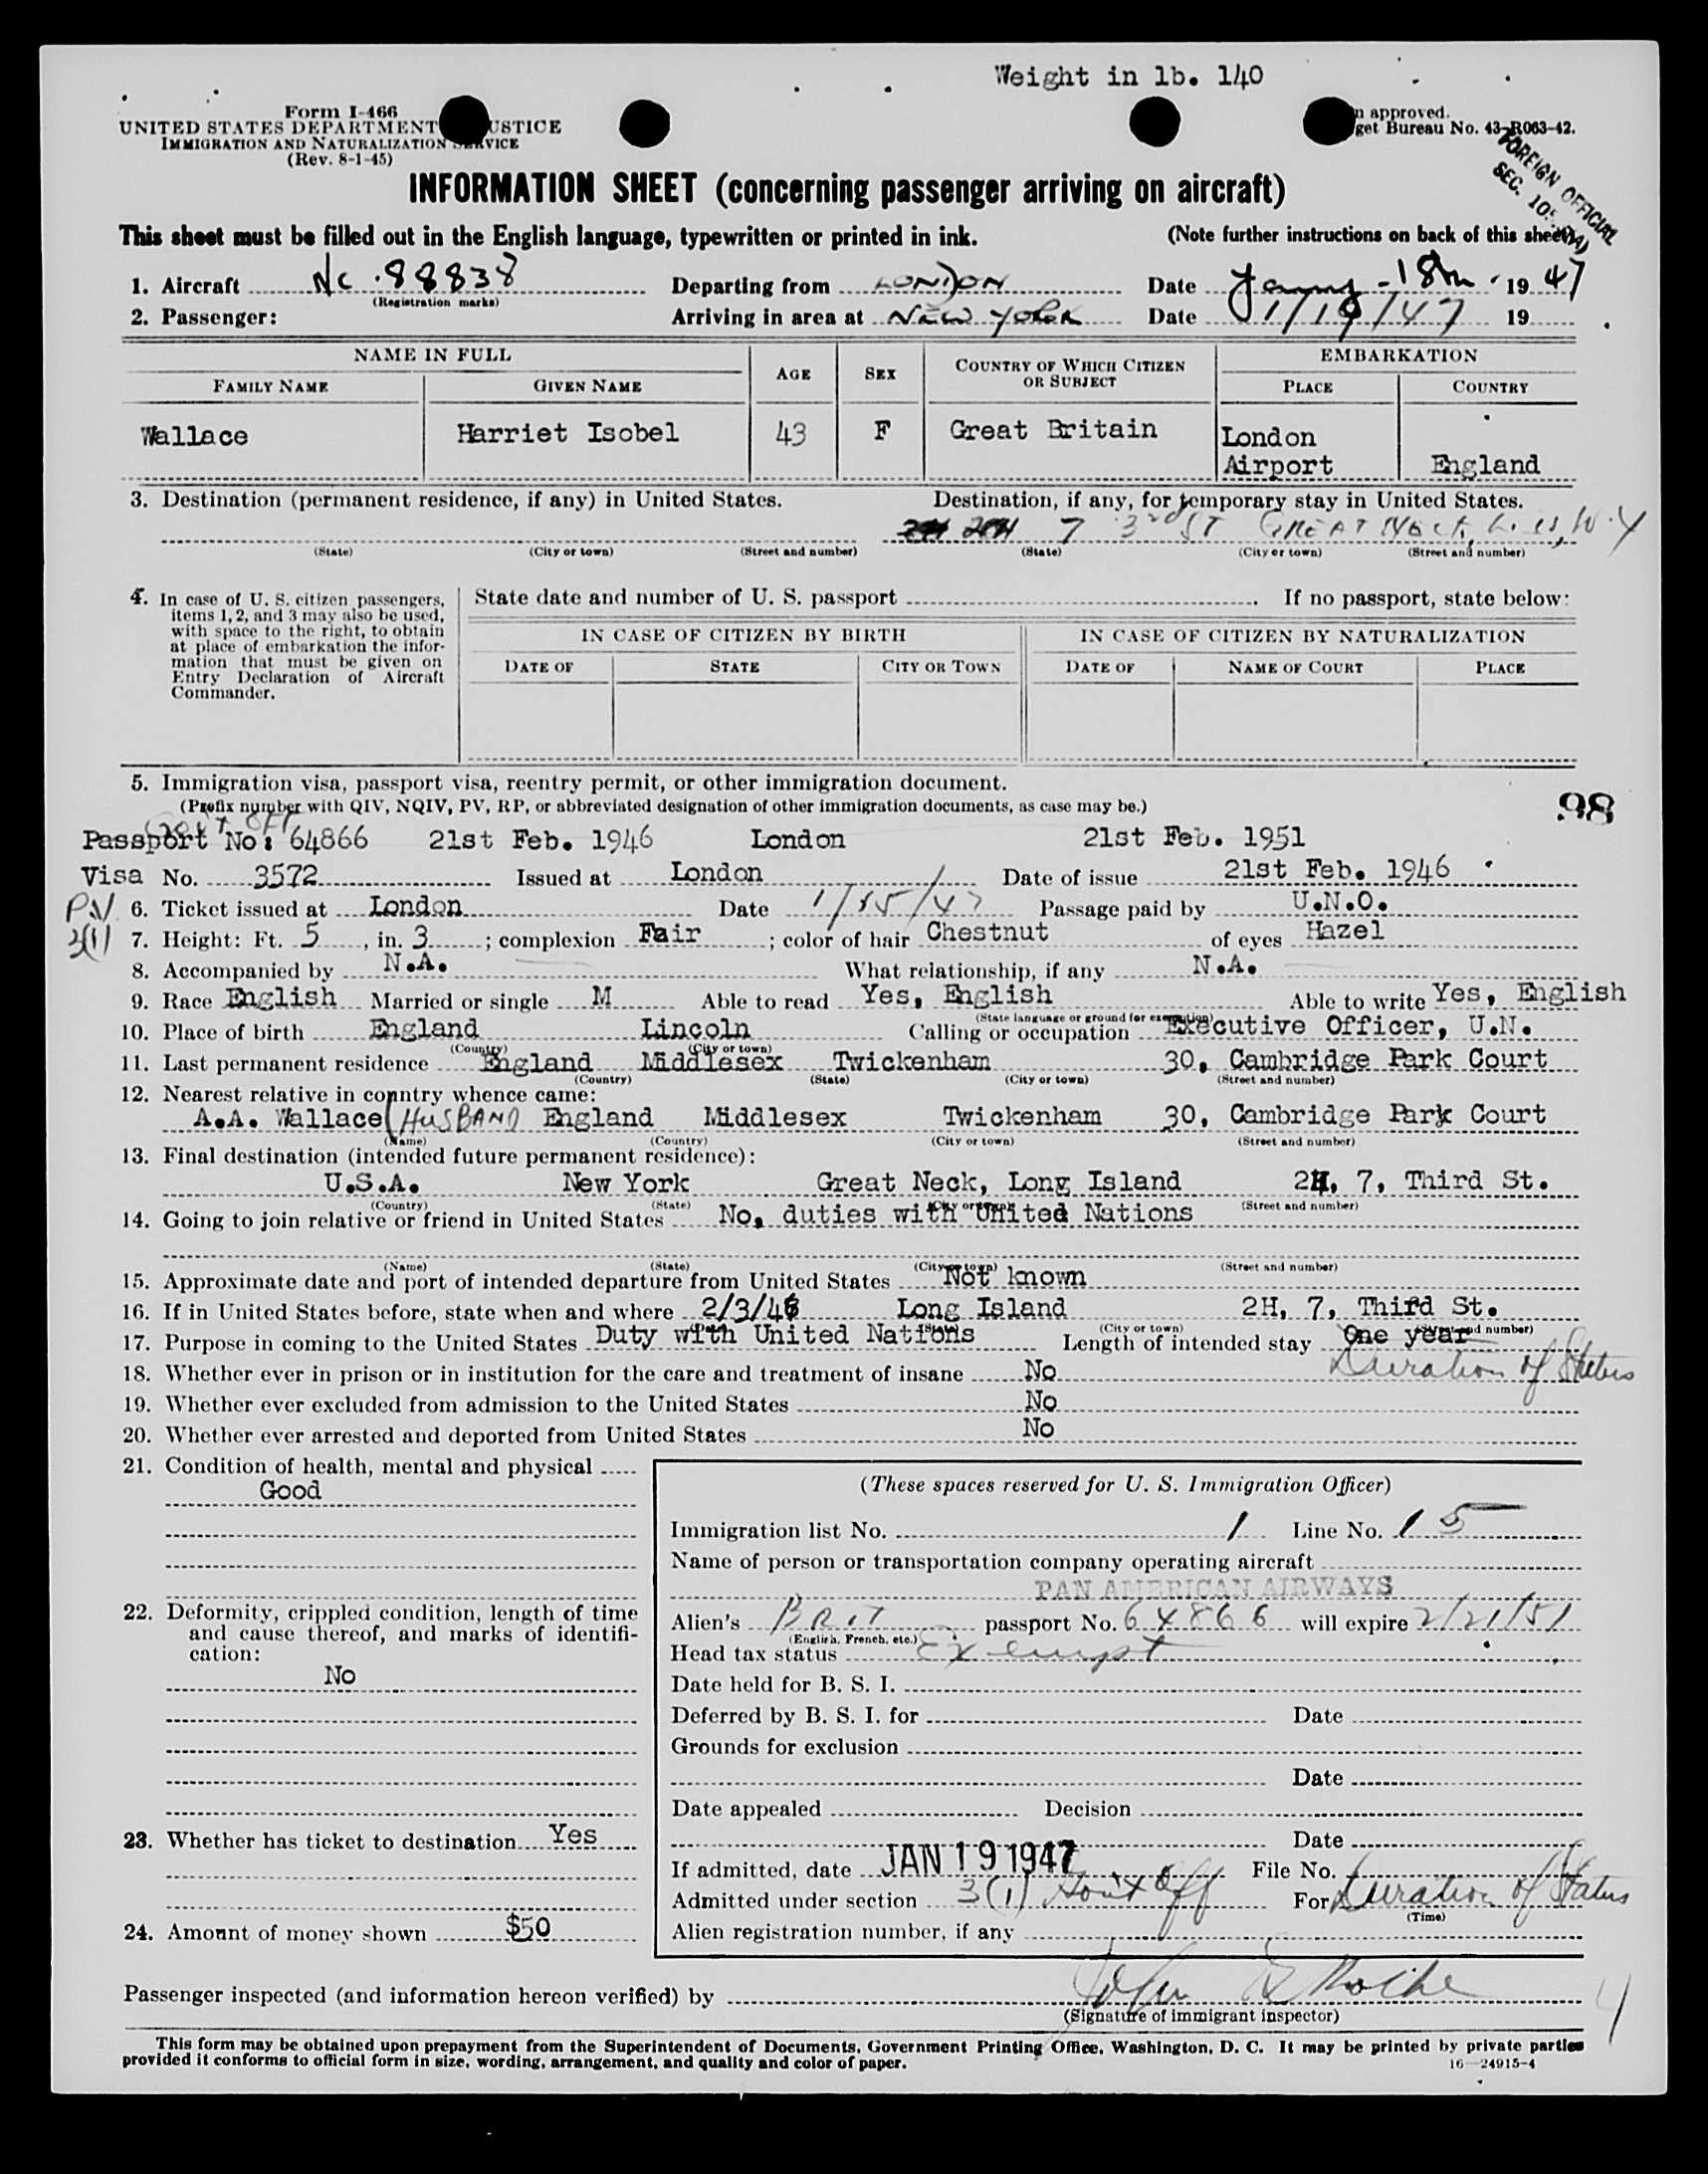 Weight in lb. 140
Form I-466
UNITED STATES DEPARTMENT USTICE
IMMIGRATION AND NATURALIZATION SERVICE
(Rev. 8-1-45)
n approved.
get Bureau No. 43-R063-42.
FOREIGN OFFICIAL
SEC.
INFORMATION SHEET (concerning passenger arriving on aircraft)
This sheet must be filled out in the English language, typewritten or printed in ink. (Note further instructions on back of this sheet.)
1. Aircraft NC.88838 Departing from LONDON Date 18th 1947
(Registration marks)
2. Passenger: Arriving in area at NEW YORK Date 1/19/47 19
NAME IN FULL AGE SEX COUNTRY OF WHICH CITIZEN OR SUBJECT EMBARKATION
FAMILY NAME GIVEN NAME PLACE COUNTRY
Wallace Harriet Isobel 43 F Great Britain London
Airport England
3. Destination (permanent residence, if any) in United States. Destination, if any, for temporary stay in United States.
7 3rd ST GREAT NECK, L. IS, N.Y
(State) (City or town) (Street and number) (State) (City or town) (Street and number)
4. In case of U. S. citizen passengers, items 1, 2, and 3 may also be used, with space to the right, to obtain at place of embarkation the information that must be given on Entry Declaration of Aircraft Commander.
State date and number of U. S. passport . If no passport, state below:
IN CASE OF CITIZEN BY BIRTH IN CASE OF CITIZEN BY NATURALIZATION
DATE OF STATE CITY OR TOWN DATE OF NAME OF COURT PLACE
5. Immigration visa, passport visa, reentry permit, or other immigration document.
(Prefix number with QIV, NQIV, PV, RP, or abbreviated designation of other immigration documents, as case may be.)
98
GOVT OFF
Passport No: 64866 21st Feb. 1946 London 21st Feb. 1951
Visa No. 3572 Issued at London Date of issue 21st Feb. 1946
PV 6. Ticket issued at London Date 1/15/47 Passage paid by U.N.O.
3(1) 7. Height: Ft. 5, in. 3; complexion Fair; color of hair Chestnut of eyes Hazel
8. Accompanied by N.A. What relationship, if any N.A.
9. Race English Married or single M Able to read Yes, English Able to write Yes, English
(State language or ground for exemption)
10. Place of birth England Lincoln Calling or occupation Executive Officer, U.N.
(Country) (City or town)
11. Last permanent residence England Middlesex Twickenham 30, Cambridge Park Court
(Country) (State) (City or town) (Street and number)
12. Nearest relative in country whence came:
A.A. Wallace (HUSBAND England Middlesex Twickenham 30, Cambridge Park Court
(Name) (Country) (City or town) (Street and number)
13. Final destination (intended future permanent residence):
U.S.A. New York Great Neck, Long Island 2H, 7, Third St.
(Country) (State) (City or town) (Street and number)
14. Going to join relative or friend in United States No, duties with United Nations
(Name) (State) (City or town) (Street and number)
15. Approximate date and port of intended departure from United States Not known
16. If in United States before, state when and where 2/3/46 Long Island 2H, 7, Third St.
(State) (City or town) (Street and number)
17. Purpose in coming to the United States Duty with United Nations Length of intended stay One year
Duration of Status
18. Whether ever in prison or in institution for the care and treatment of insane No
19. Whether ever excluded from admission to the United States No
20. Whether ever arrested and deported from United States No
21. Condition of health, mental and physical
Good
22. Deformity, crippled condition, length of time and cause thereof, and marks of identification:
No
23. Whether has ticket to destination Yes
24. Amount of money shown $50
(These spaces reserved for U. S. Immigration Officer)
Immigration list No. 1 Line No. 15
Name of person or transportation company operating aircraft
PAN AMERICAN AIRWAYS
Alien's BRIT passport No. 64866 will expire 2/21/51
(English, French, etc.)
Head tax status Exempt
Date held for B. S. I.
Deferred by B. S. I. for Date
Grounds for exclusion
Date
Date appealed Decision
Date
If admitted, date JAN 19 1947 File No.
Admitted under section 3(1) Gov't Off For Duration of Status
(Time)
Alien registration number, if any
Passenger inspected (and information hereon verified) by John
(Signature of immigrant inspector)
4
This form may be obtained upon prepayment from the Superintendent of Documents, Government Printing Office, Washington, D. C. It may be printed by private parties
provided it conforms to official form in size, wording, arrangement, and quality and color of paper. 16—24915-4